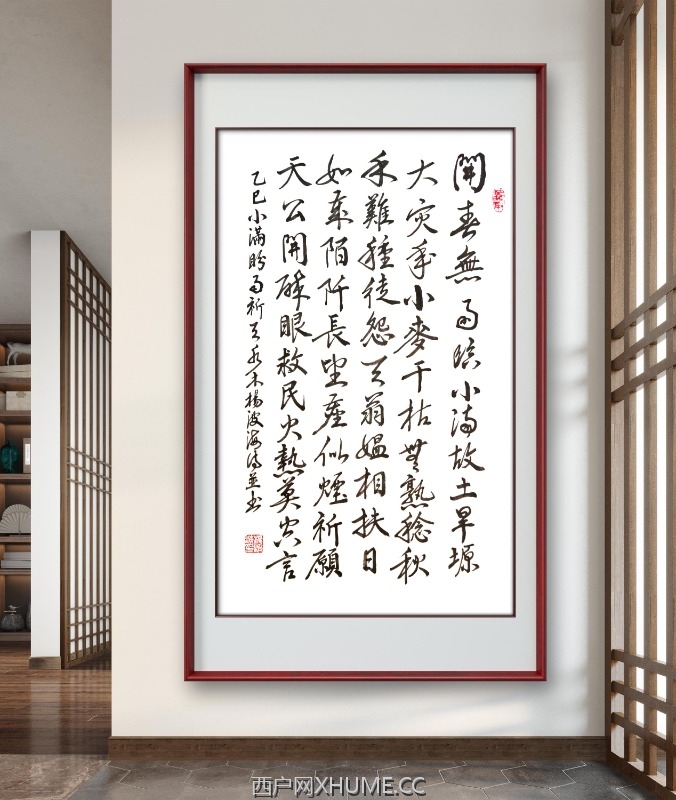 開春無雨臨小满故土旱塬
大灾年小麥干枯無熟稔秋
禾難種徒怨天翁媼相扶日
如陌阡長望塵似煙祈願
天公開眼救民火熱莫空言
乙巳小滿盼雨祈天木楊波海诗並书
西户网XHUME.CC